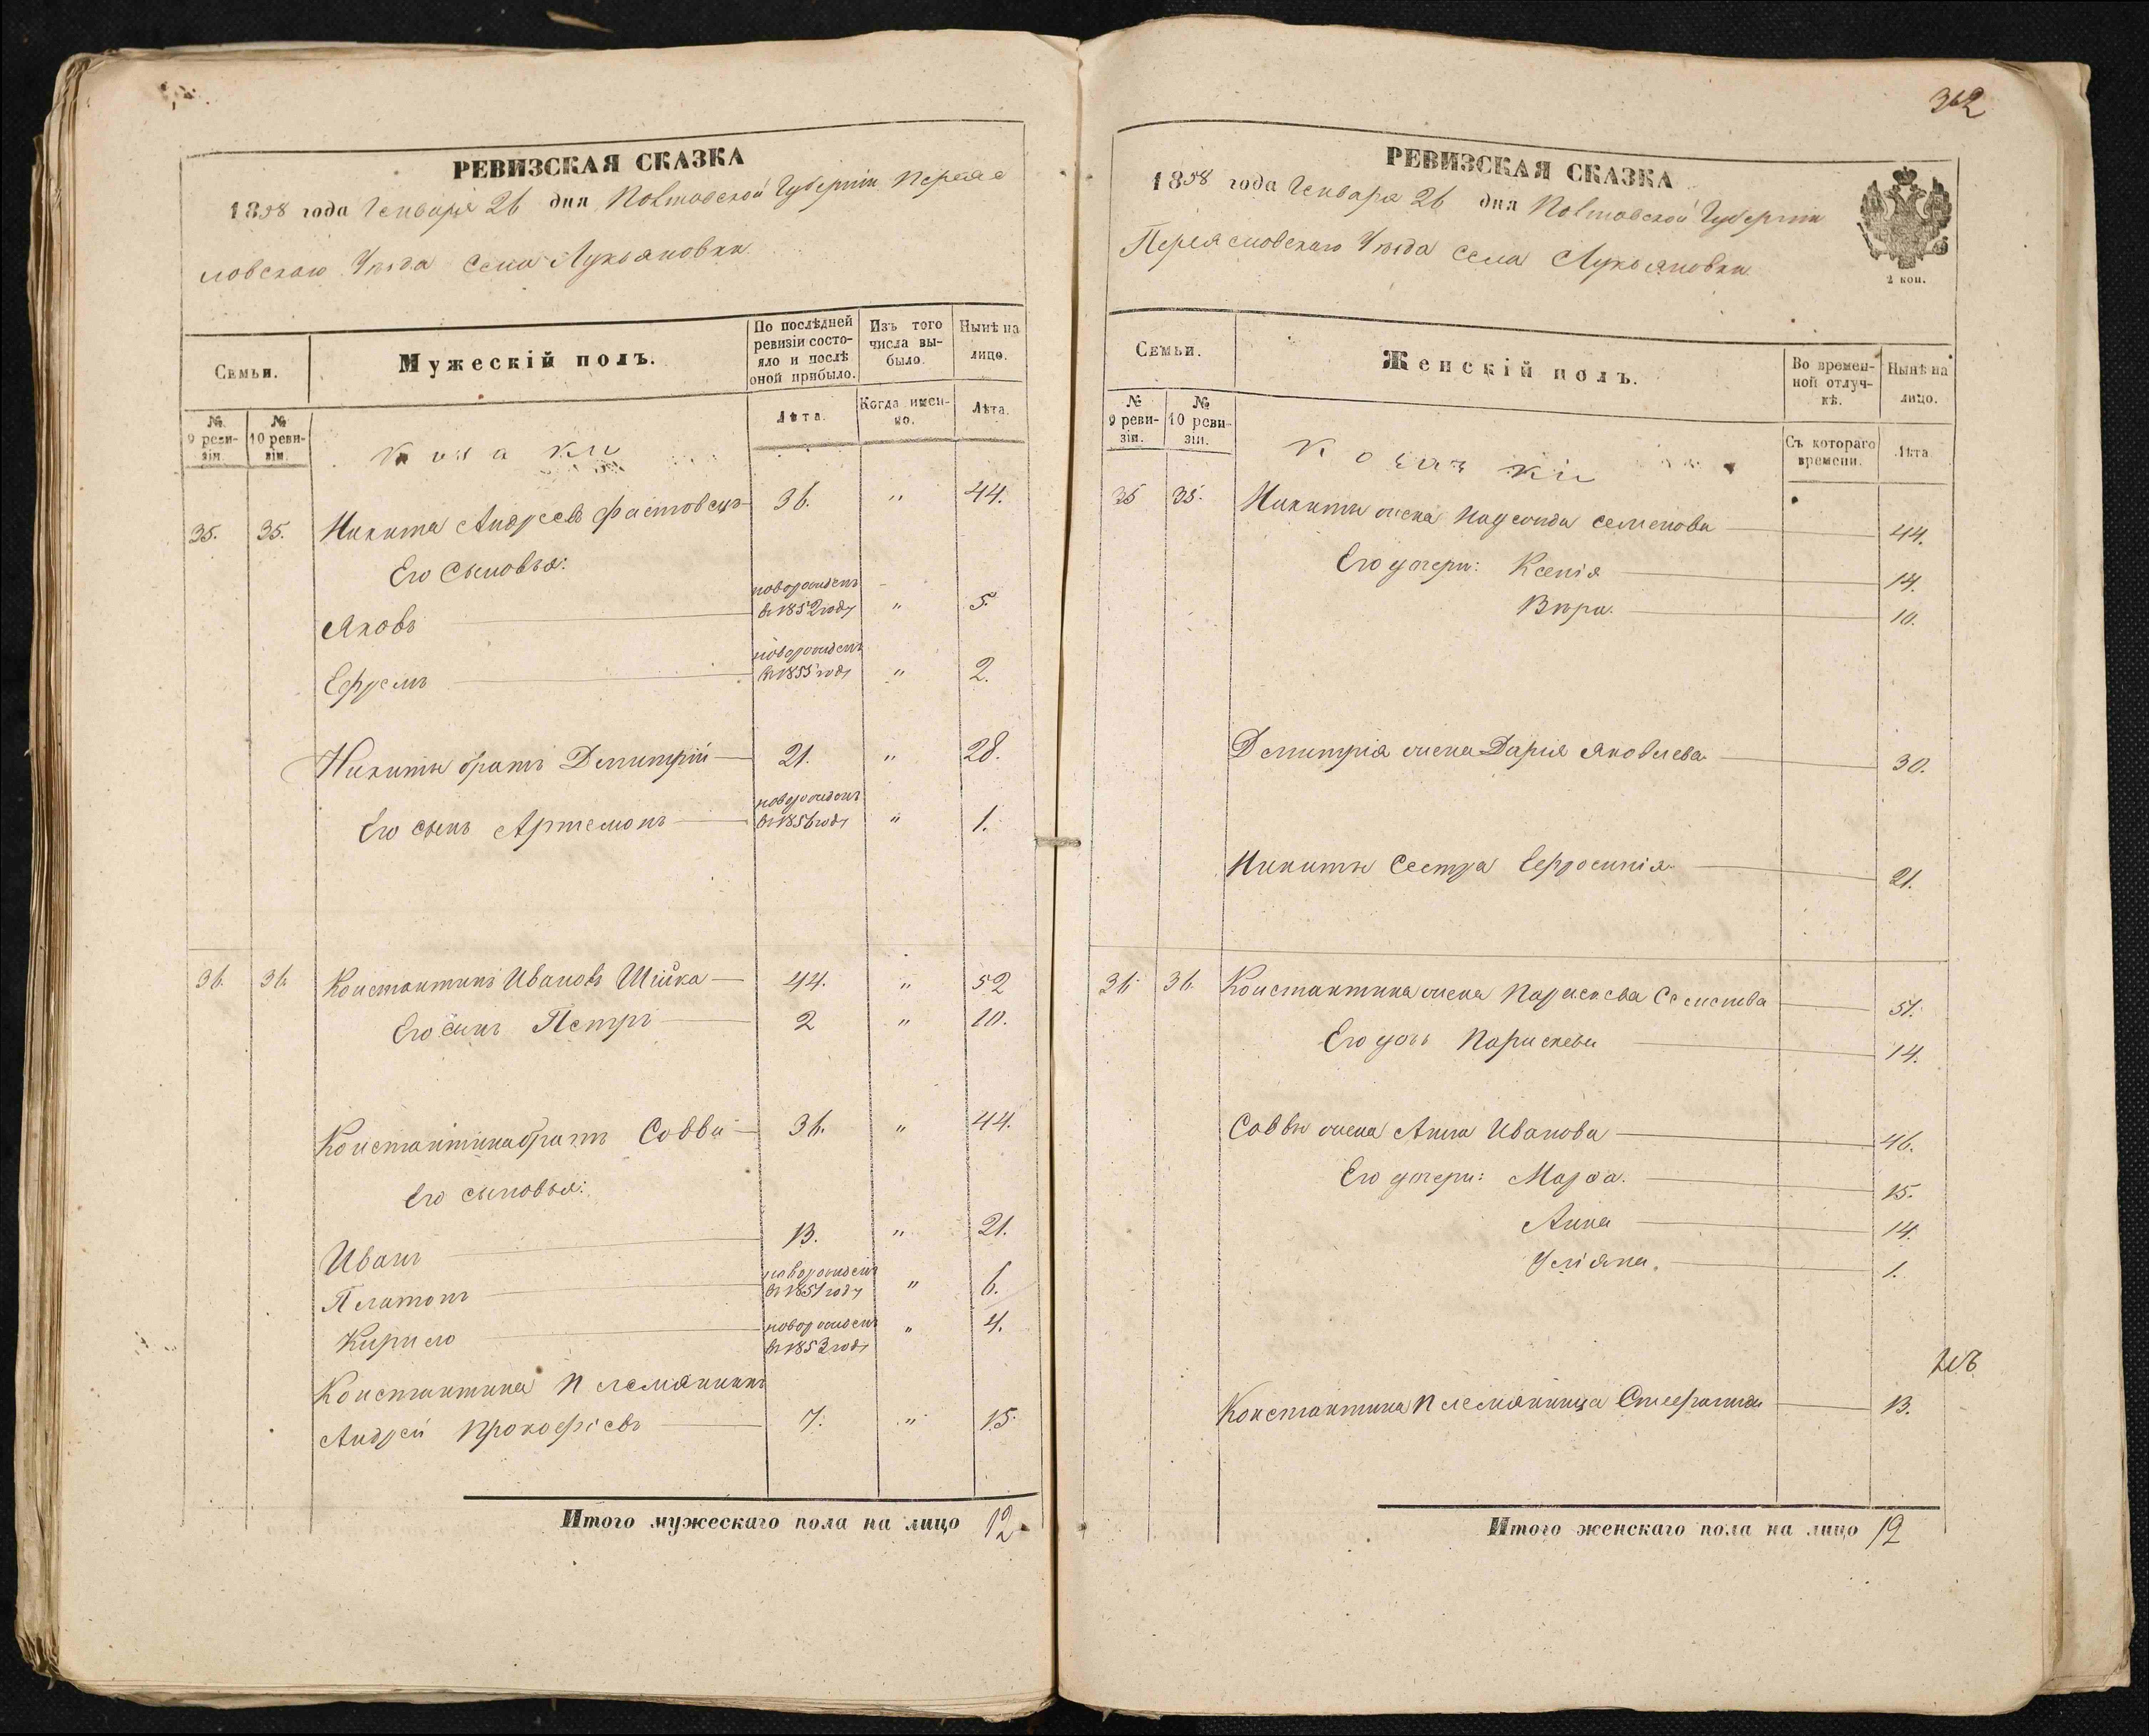 РЕВИЗСКАЯ СКАЗКА
1858 года Генваря 26 дня Полтавской Губерніи Переяс
ловскаго Уѣзда Села Лукьяновки
Семьи.
Мужескій полъ.
По послѣдней ревизіи состояло и послѣ оной прибыло.
Изъ того числа выбыло.
Нынѣ на лицо.
№ 9 ревизіи.
№ 10 ревизіи.
Лѣта.
Когда именно.
Лѣта.
Козаки
35. 35. Никита Андреевъ Фастовецъ 36. " 44.
Его Сыновья:
новорожденъ
Яковъ в 1852 году " 5.
новорожденъ
Ефремъ в 1855 году " 2.
Никиты братъ Демитрій 21. " 28.
новорожденъ
Его сынъ Артемонъ в 1856 году " 1.
36. 36. Константинъ Ивановъ Шійка 44. " 52
Его сынъ Петръ 2 " 10.
Константина братъ Савва 36. " 44.
Его сыновья:
Иванъ 13. " 21.
новорожденъ
Платонъ в 1851 году " 6.
новорожденъ
Кирило в 1853 году " 4.
Константина племянникъ
Андрей Прокофіевъ 7. " 15.
Итого мужескаго пола на лицо 12
362
РЕВИЗСКАЯ СКАЗКА
1858 года Генваря 26 дня Полтавской Губерніи
Переясловскаго Уѣзда Села Лукьяновки
2 коп.
Семьи.
Женскій полъ.
Во временной отлучкѣ.
Нынѣ на лицо.
№ 9 ревизіи.
№ 10 ревизіи.
Съ котораго времени.
Лѣта
Козачки
35 35. Никиты жена Надежда Семенова 44.
Его дочери: Ксенія 14.
Вѣра. 10.
Демитрія жена Дарія Яковлева 30.
Никиты Сестра Ефросинія 21.
36 36. Константина жена Параскева 51.
Его дочь Параскева 14.
Саввы жена Анна Иванова 46.
Его дочери: Марѳа. 15.
Анна 14.
Уліяна. 1.
Константина племянница Стефанида 13.
Итого женскаго пола на лицо 12